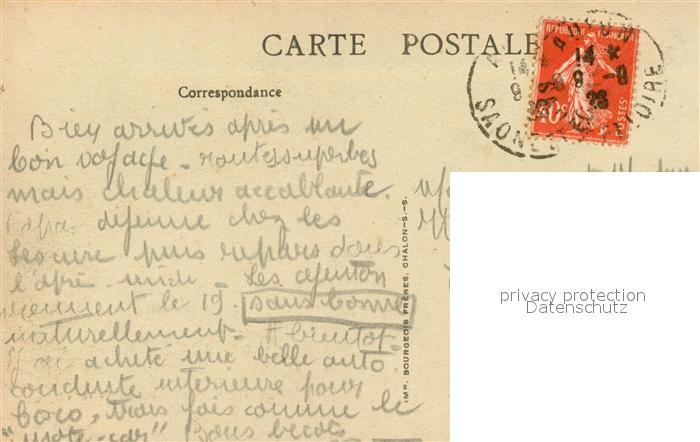 CARTE POSTALE
Correspondance
REPUBLIQUE FRANÇAISE
10c POSTES
14
9 -8
26
SAONE ET LOIRE
Bien arrivés après un
bon voyage - routes superbes
mais chaleur accablante.
Papa déjeune chez les
puis repars dans
l'après midi Les
viennent le 19. sans bonne
naturellement - A bientôt
J'ai acheté une belle auto
conduite interieure pour
Coco, trois fois comme le
Bons becots
IMP. BOURGEOIS FRÈRES, CHALON-S.-S.
privacy protection
Datenschutz